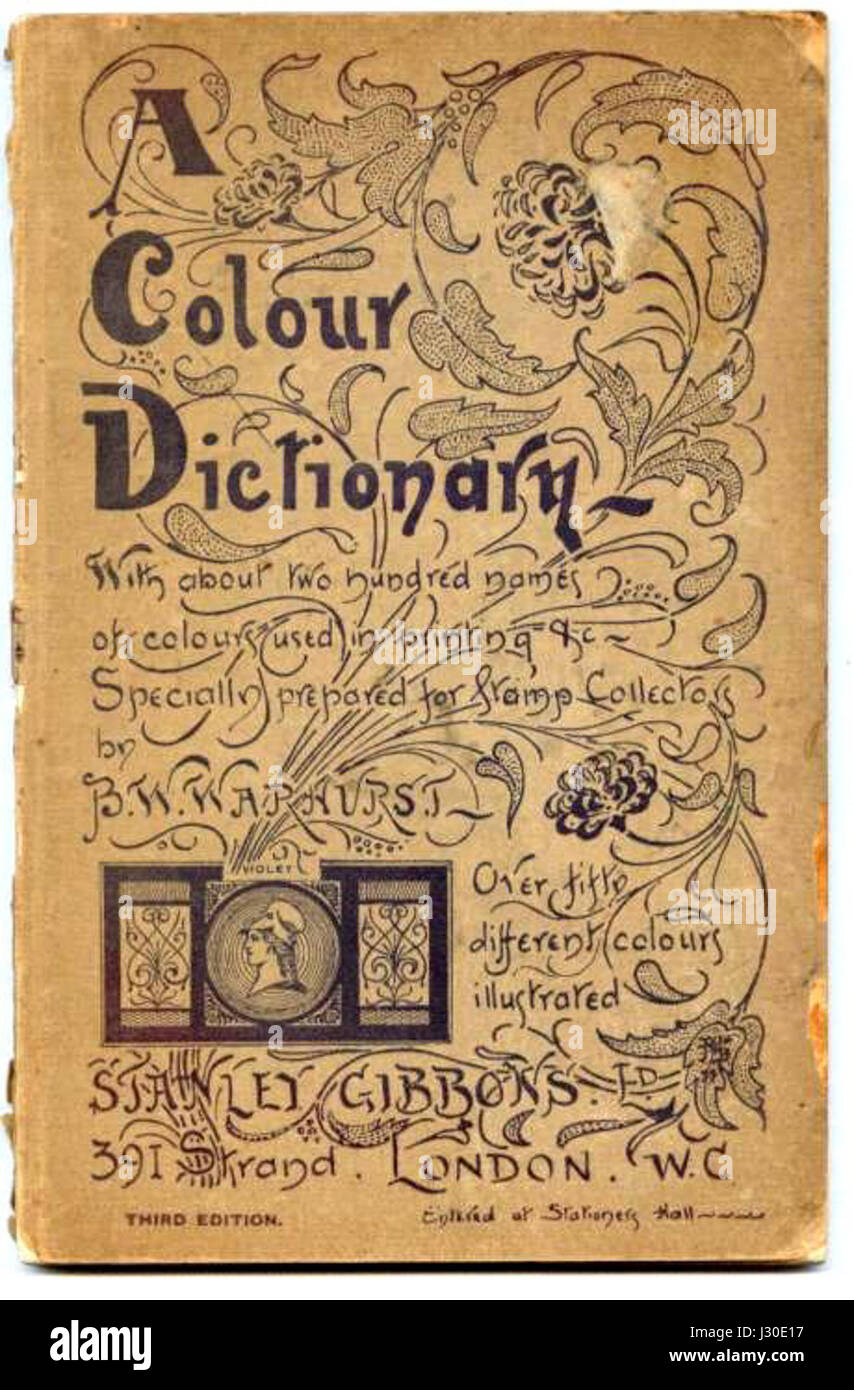 A
Colour
Dictionary
With about two hundred names
of colours used in printing &c
Specially prepared for Stamp Collectors
by
B.W. WARHURST
VIOLET
Over fifty
different colours
illustrated
STANLEY GIBBONS. LD.
391 Strand. LONDON. W.C
THIRD EDITION.
Entered at Stationers Hall
alamy
Image ID: J30E17
www.alamy.com